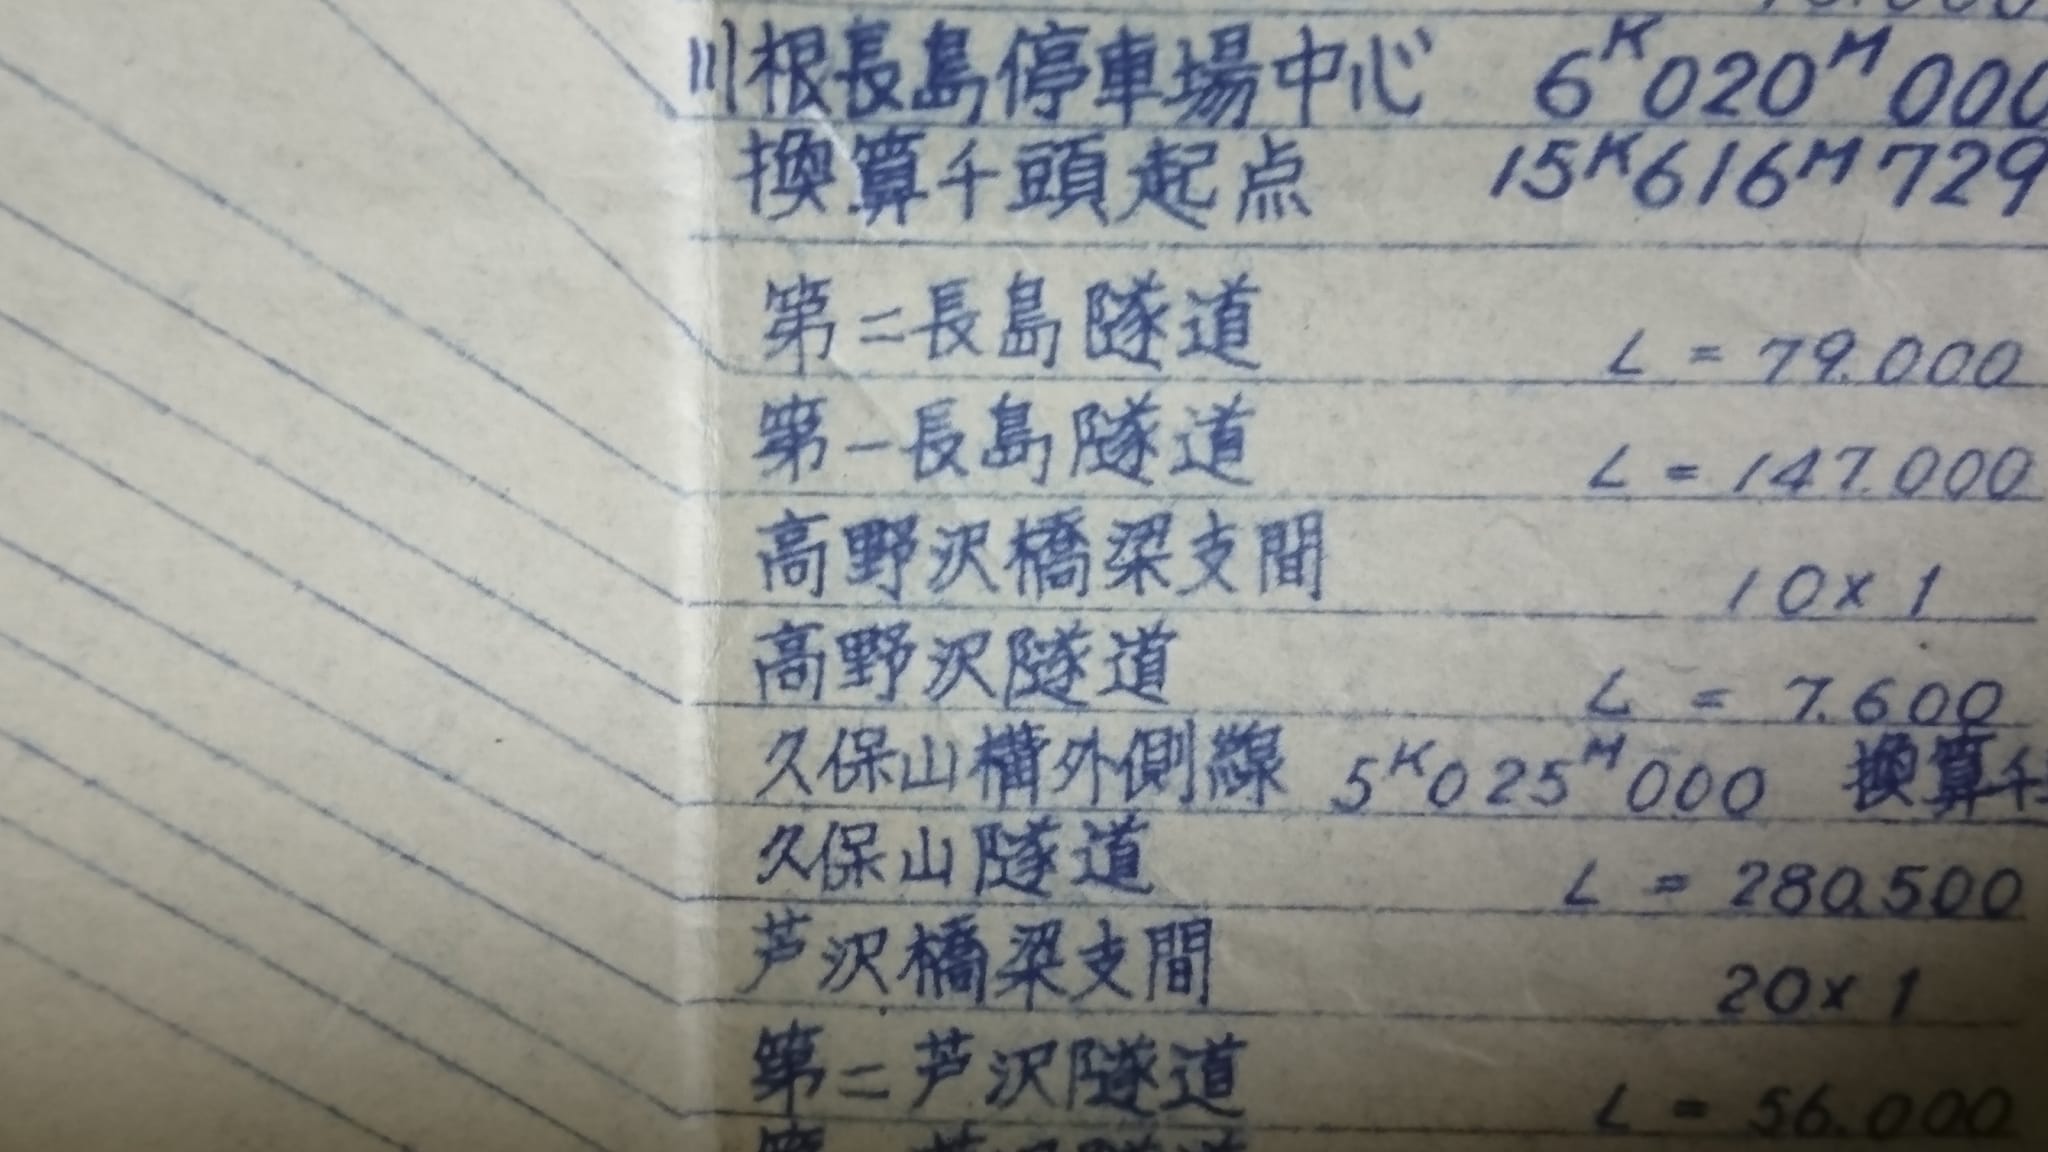 川根長島停車場中心 6ᴷ020ᴹ000
換算千頭起点 15ᴷ616ᴹ729
第二長島隧道 L = 79.000
第一長島隧道 L = 147.000
高野沢橋梁支間 10×1
高野沢隧道 L = 7.600
久保山構外側線 5ᴷ025ᴹ000 換算千
久保山隧道 L = 280.500
芦沢橋梁支間 20×1
第二芦沢隧道 L = 56.000